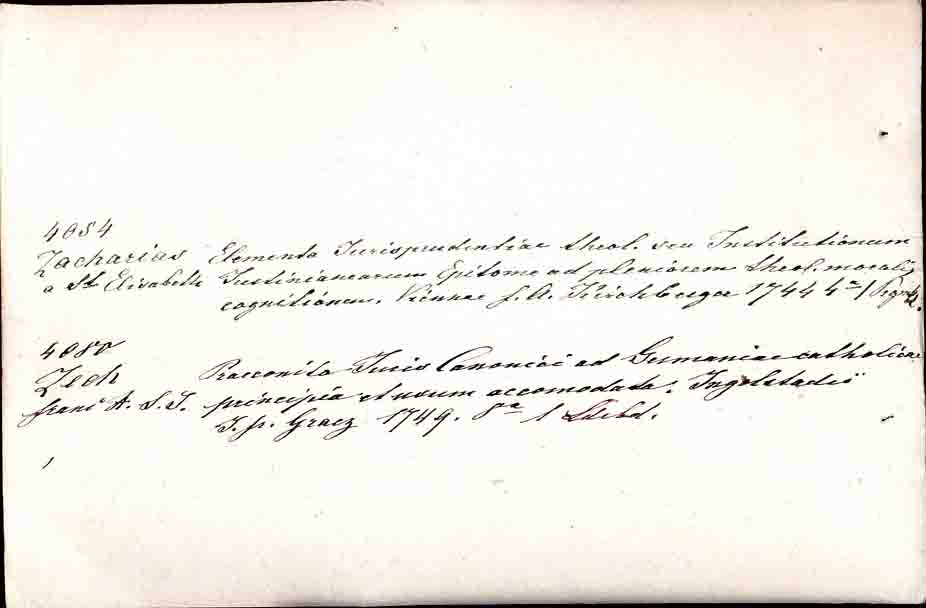 4084
Zacharias Elementa Jurisprudentiae theol. seu Institutionum
a St Elisabeth Justinianearum Epitome ad pleniorem theol. moralis
cognitionem. Viennae J. A. Kirchberger 1744 4º 1
4085
Zech Praecognita Juris Canonici ad Germaniae catholicae
Franc A. S. J. principia et usum accomodata. Ingolstadii
J. Fr. Graez 1749. 8º 1